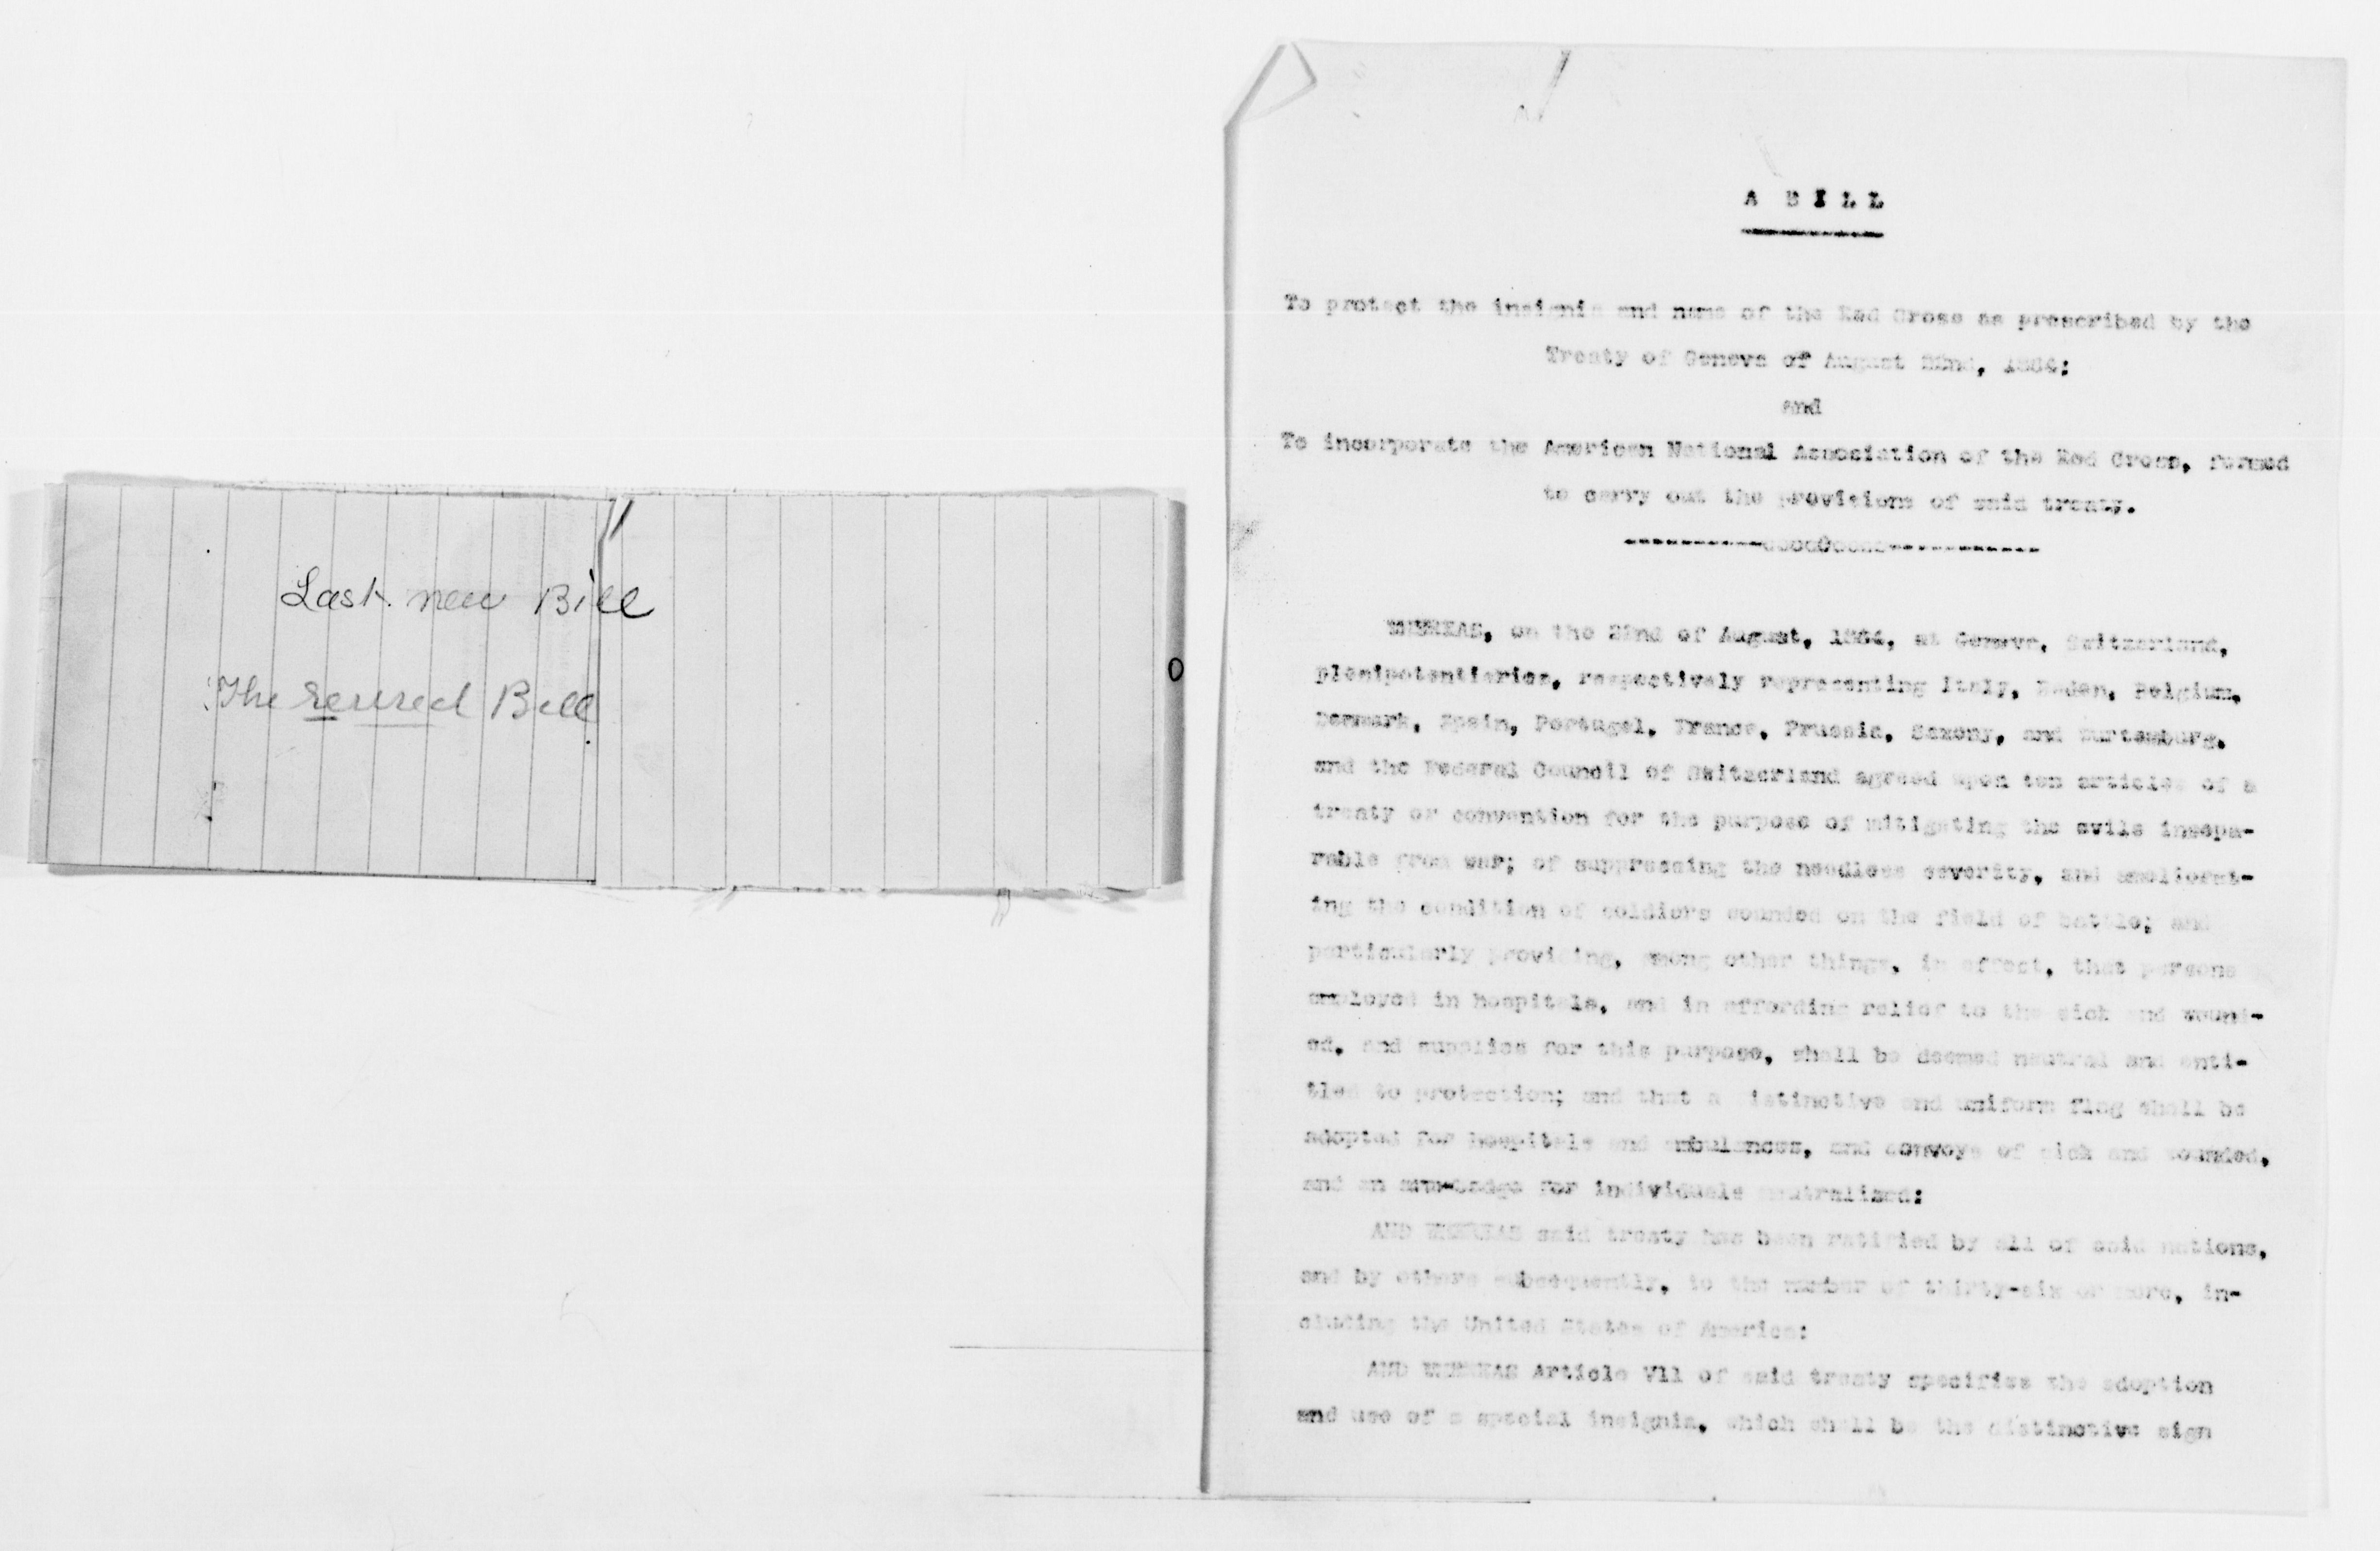 Last new Bill
The revised Bill
A BILL
To protect the insignia and name of the Red Cross as prescribed by the
Treaty of Geneva of August 22nd, 1864;
and
To incorporate the American National Association of the Red Cross, formed
to carry out the provisions of said treaty.
WHEREAS, on the 22nd of August, 1864, at Geneva, Switzerland,
plenipotentiaries, respectively representing Italy, Baden, Belgium,
Denmark, Spain, Portugal, France, Prussia, Saxony, and Wurtemburg,
and the Federal Council of Switzerland agreed upon ten articles of a
treaty or convention for the purpose of mitigating the evils insepa-
rable from war; of suppressing the needless severity, and ameliorat-
ing the condition of soldiers wounded on the field of battle; and
particularly providing, among other things, in effect, that persons
employed in hospitals, and in affording relief to the sick and wound-
ed, and supplies for this purpose, shall be deemed neutral and enti-
tled to protection; and that a distinctive and uniform flag shall be
adopted for hospitals and ambulances, and convoys of sick and wounded,
and an arm-badge for individuals neutralized:
AND WHEREAS said treaty has been ratified by all of said nations,
and by others subsequently, to the number of thirty-six or more, in-
cluding the United States of America:
AND WHEREAS Article VII of said treaty specifies the adoption
and use of a special insignia, which shall be the distinctive sign